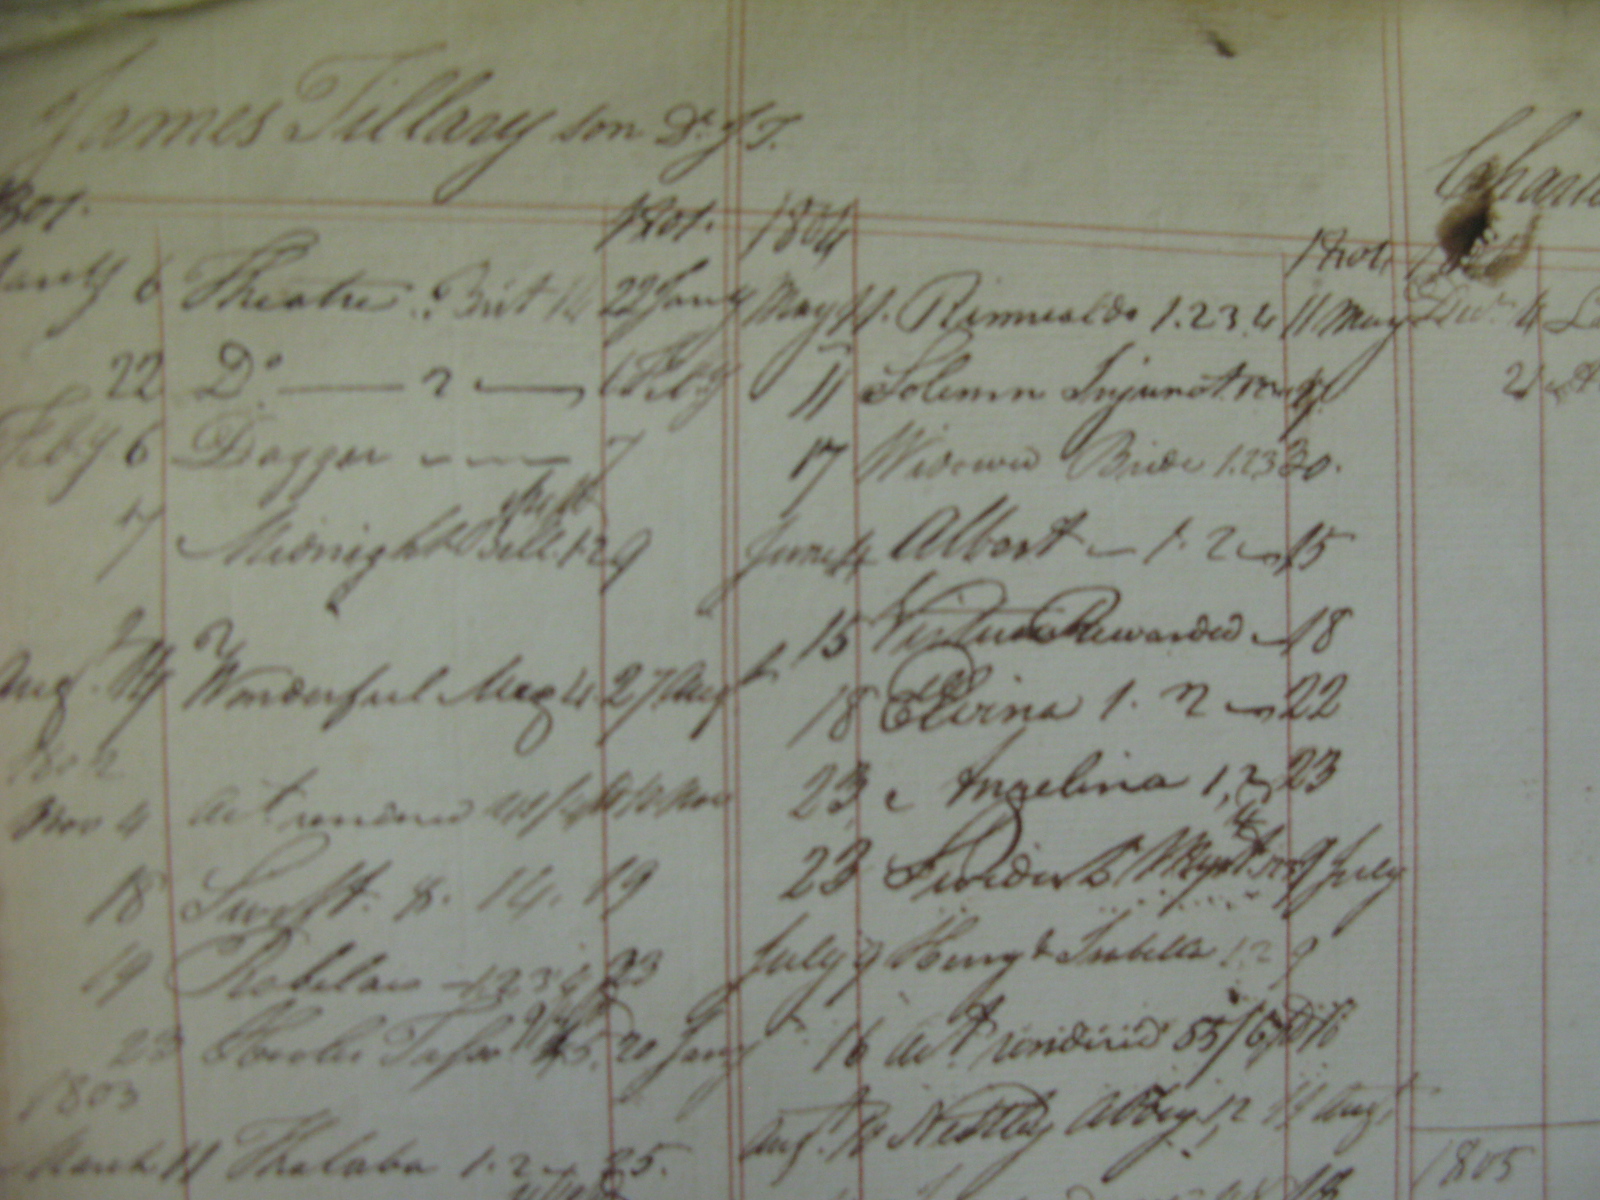 James Tillary son Dr. J T.
1801.
Ret.
Jany 6 Theatre. Brit 14 22 Jany
22 Do. — 2 — 6 Feby
Feby 6 Dagger — 7
7 Midnight Bell. 1.2 9
Augt. 14 Wonderful Mag 4. 27 Augt
1802
Nov 4 act rendered Nov
18 Swift. 8. 14. 19
19 Rabelais 1 2 3 4 23
23 Hooles Tasso 20 Jany
1803
March 11 Thalaba 1. 2 25.
1804
Ret.
May 4. Rinnaldo 1. 2 3. 4 11 May
11 Solemn Injunction
17 Widowed Bride 1. 2 3 30.
June 4 Albert — 1. 2 — 15
15 Virtue Rewarded — 18
18 Elvina 1. 2 — 22
23 Angelina 1, 2 23
23 9 July
July 9 Henry & Isabella 1 2 9
16 act rendered 85/6
Augt. Nettley Abbey 1, 2 Augt
Charl
4
1805